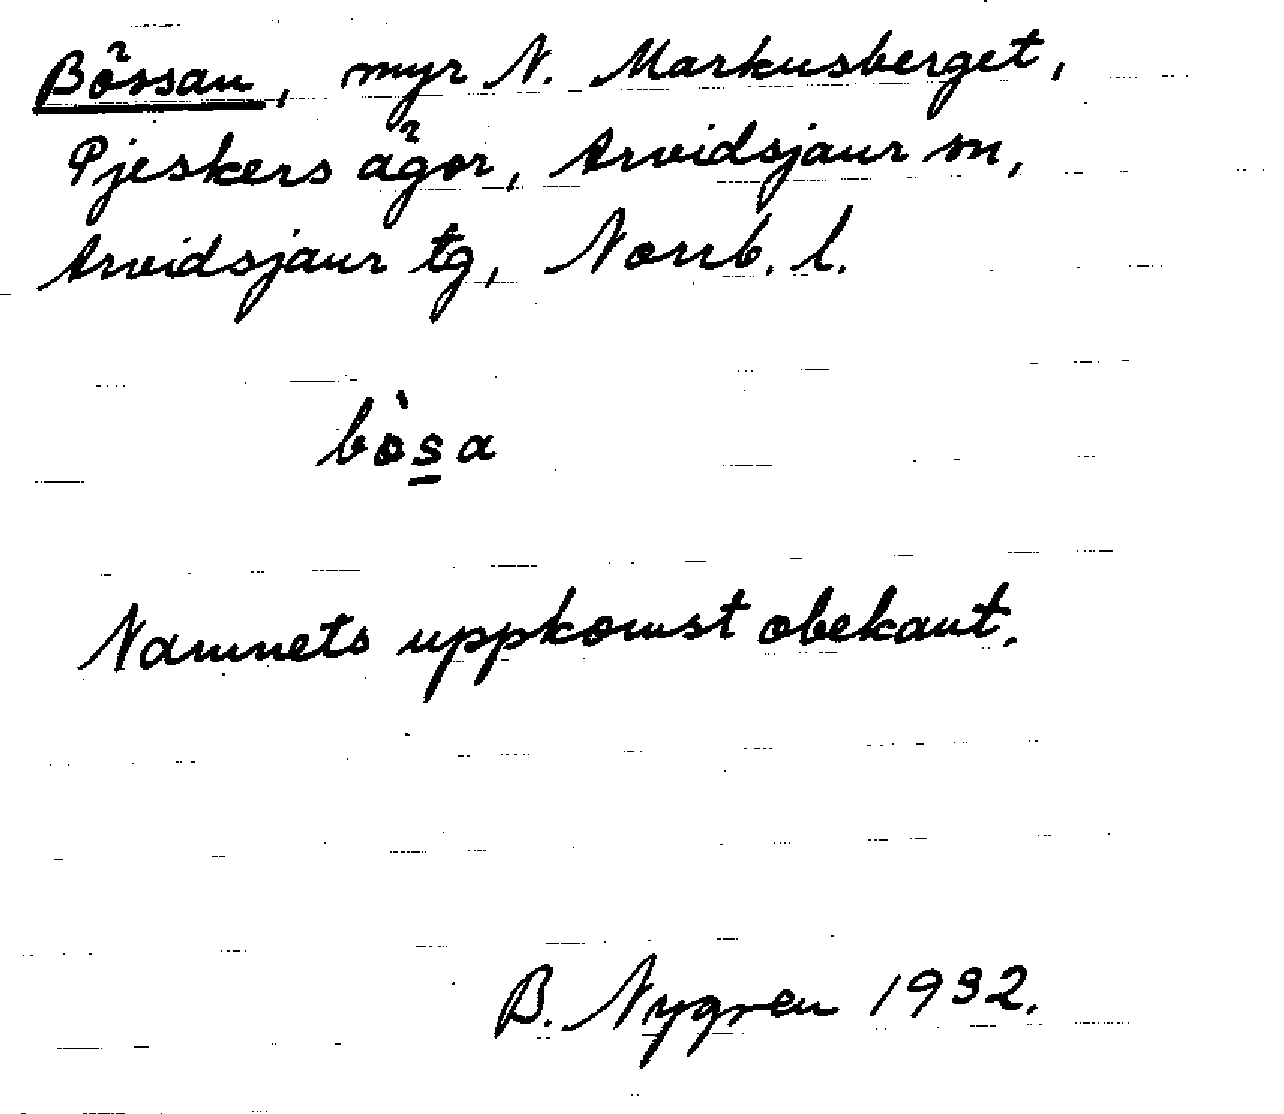 Bössan, myr N. Markusberget,
Pjeskers ägor, Arvidsjaur sn,
Arvidsjaur tg, Norrb. l.
bòs̲a
Namnets uppkomst obekant.
B. Nygren 1932.